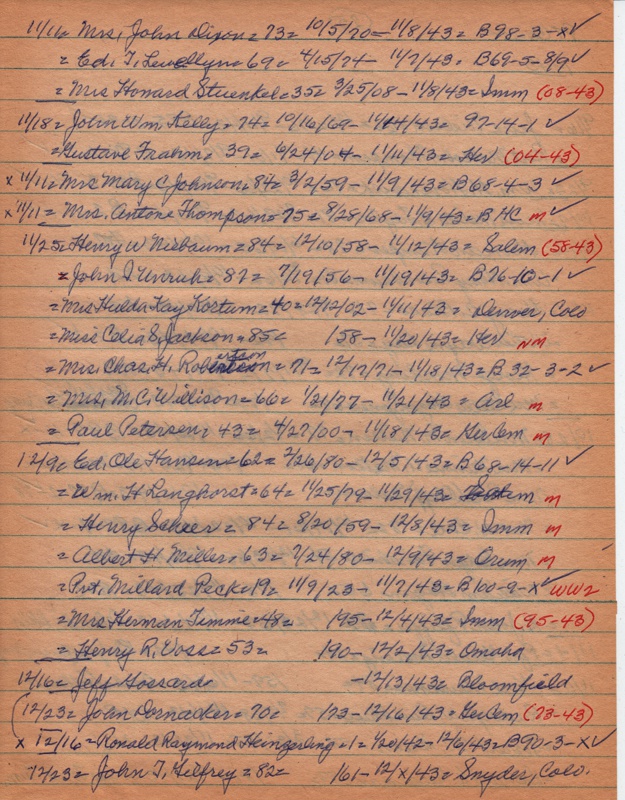 11/11= Mrs. John Dixon = 73= 10/5/70 - 11/8/43= B98-3-X✓
= Ed. T. Lewellyn = 69= 4/15/74 - 11/7/43= B69-5-8/9✓
= Mrs Howard Stuenkel = 35= 3/25/08 - 11/8/43= Imm (08-43)
11/18= John Wm. Kelly = 74= 10/16/69 - 11/14/43= 97-14-1 ✓
= Gustave Frahm = 39= 6/24/04 - 11/11/43= Her (04-43)
x 11/11= Mrs Mary C Johnson = 84= 3/2/59 - 11/9/43= B68-4-3 ✓
x 11/11= Mrs. Antone Thompson = 75= 8/28/68 - 11/9/43= B HC m ✓
11/25= Henry W Niebaum = 84= 12/10/58 - 11/12/43= Salem (58-43)
= John I. Unruh = 87= 7/19/56 - 11/19/43= B76-10-1 ✓
= Mrs Hulda Kay Kostum = 40= 12/12/02 - 11/11/43= Denver, Colo
= Miss Celia S. Jackson = 85= /58 - 11/20/43= Her NM
= Mrs. Chas. H. Robertson = 71= 12/17/71 - 11/18/43= B 32-3-2 ✓
= Mrs. M. C. Willison = 66= 1/21/77 - 11/21/43= Arl m
= Paul Petersen = 43= 4/27/00 - 11/18/43= GerCem m
12/9= Ed. Ole Hansen = 62= 2/26/80 - 12/5/43= B68-14-11 ✓
= Wm. H Langhorst = 64= 11/25/79 - 11/29/43= m
= Henry Scheer = 84= 8/20/59 - 12/8/43= Imm m
= Albert H Miller = 63= 7/24/80 - 12/9/43= Orum m
= Pvt. Millard Peck = 19= 11/9/23 - 11/7/43= B100-9-X✓ WW2
= Mrs Herman Timme = 48= /95 - 12/4/43= Imm (95-43)
= Henry R. Voss = 53= /90 - 12/2/43= Omaha
12/16= Jeff Gossard= - 12/13/43= Bloomfield
(12/23= John Dornacker = 70= /73 - 12/16/43= GerCem (73-43)
x 12/16= Ronald Raymond Heingerling = 1= 1/20/42 - 12/6/43= B90-3-X✓
12/23= John T. Gilfrey = 82= /61 - 12/X/43= Snyder, Colo.